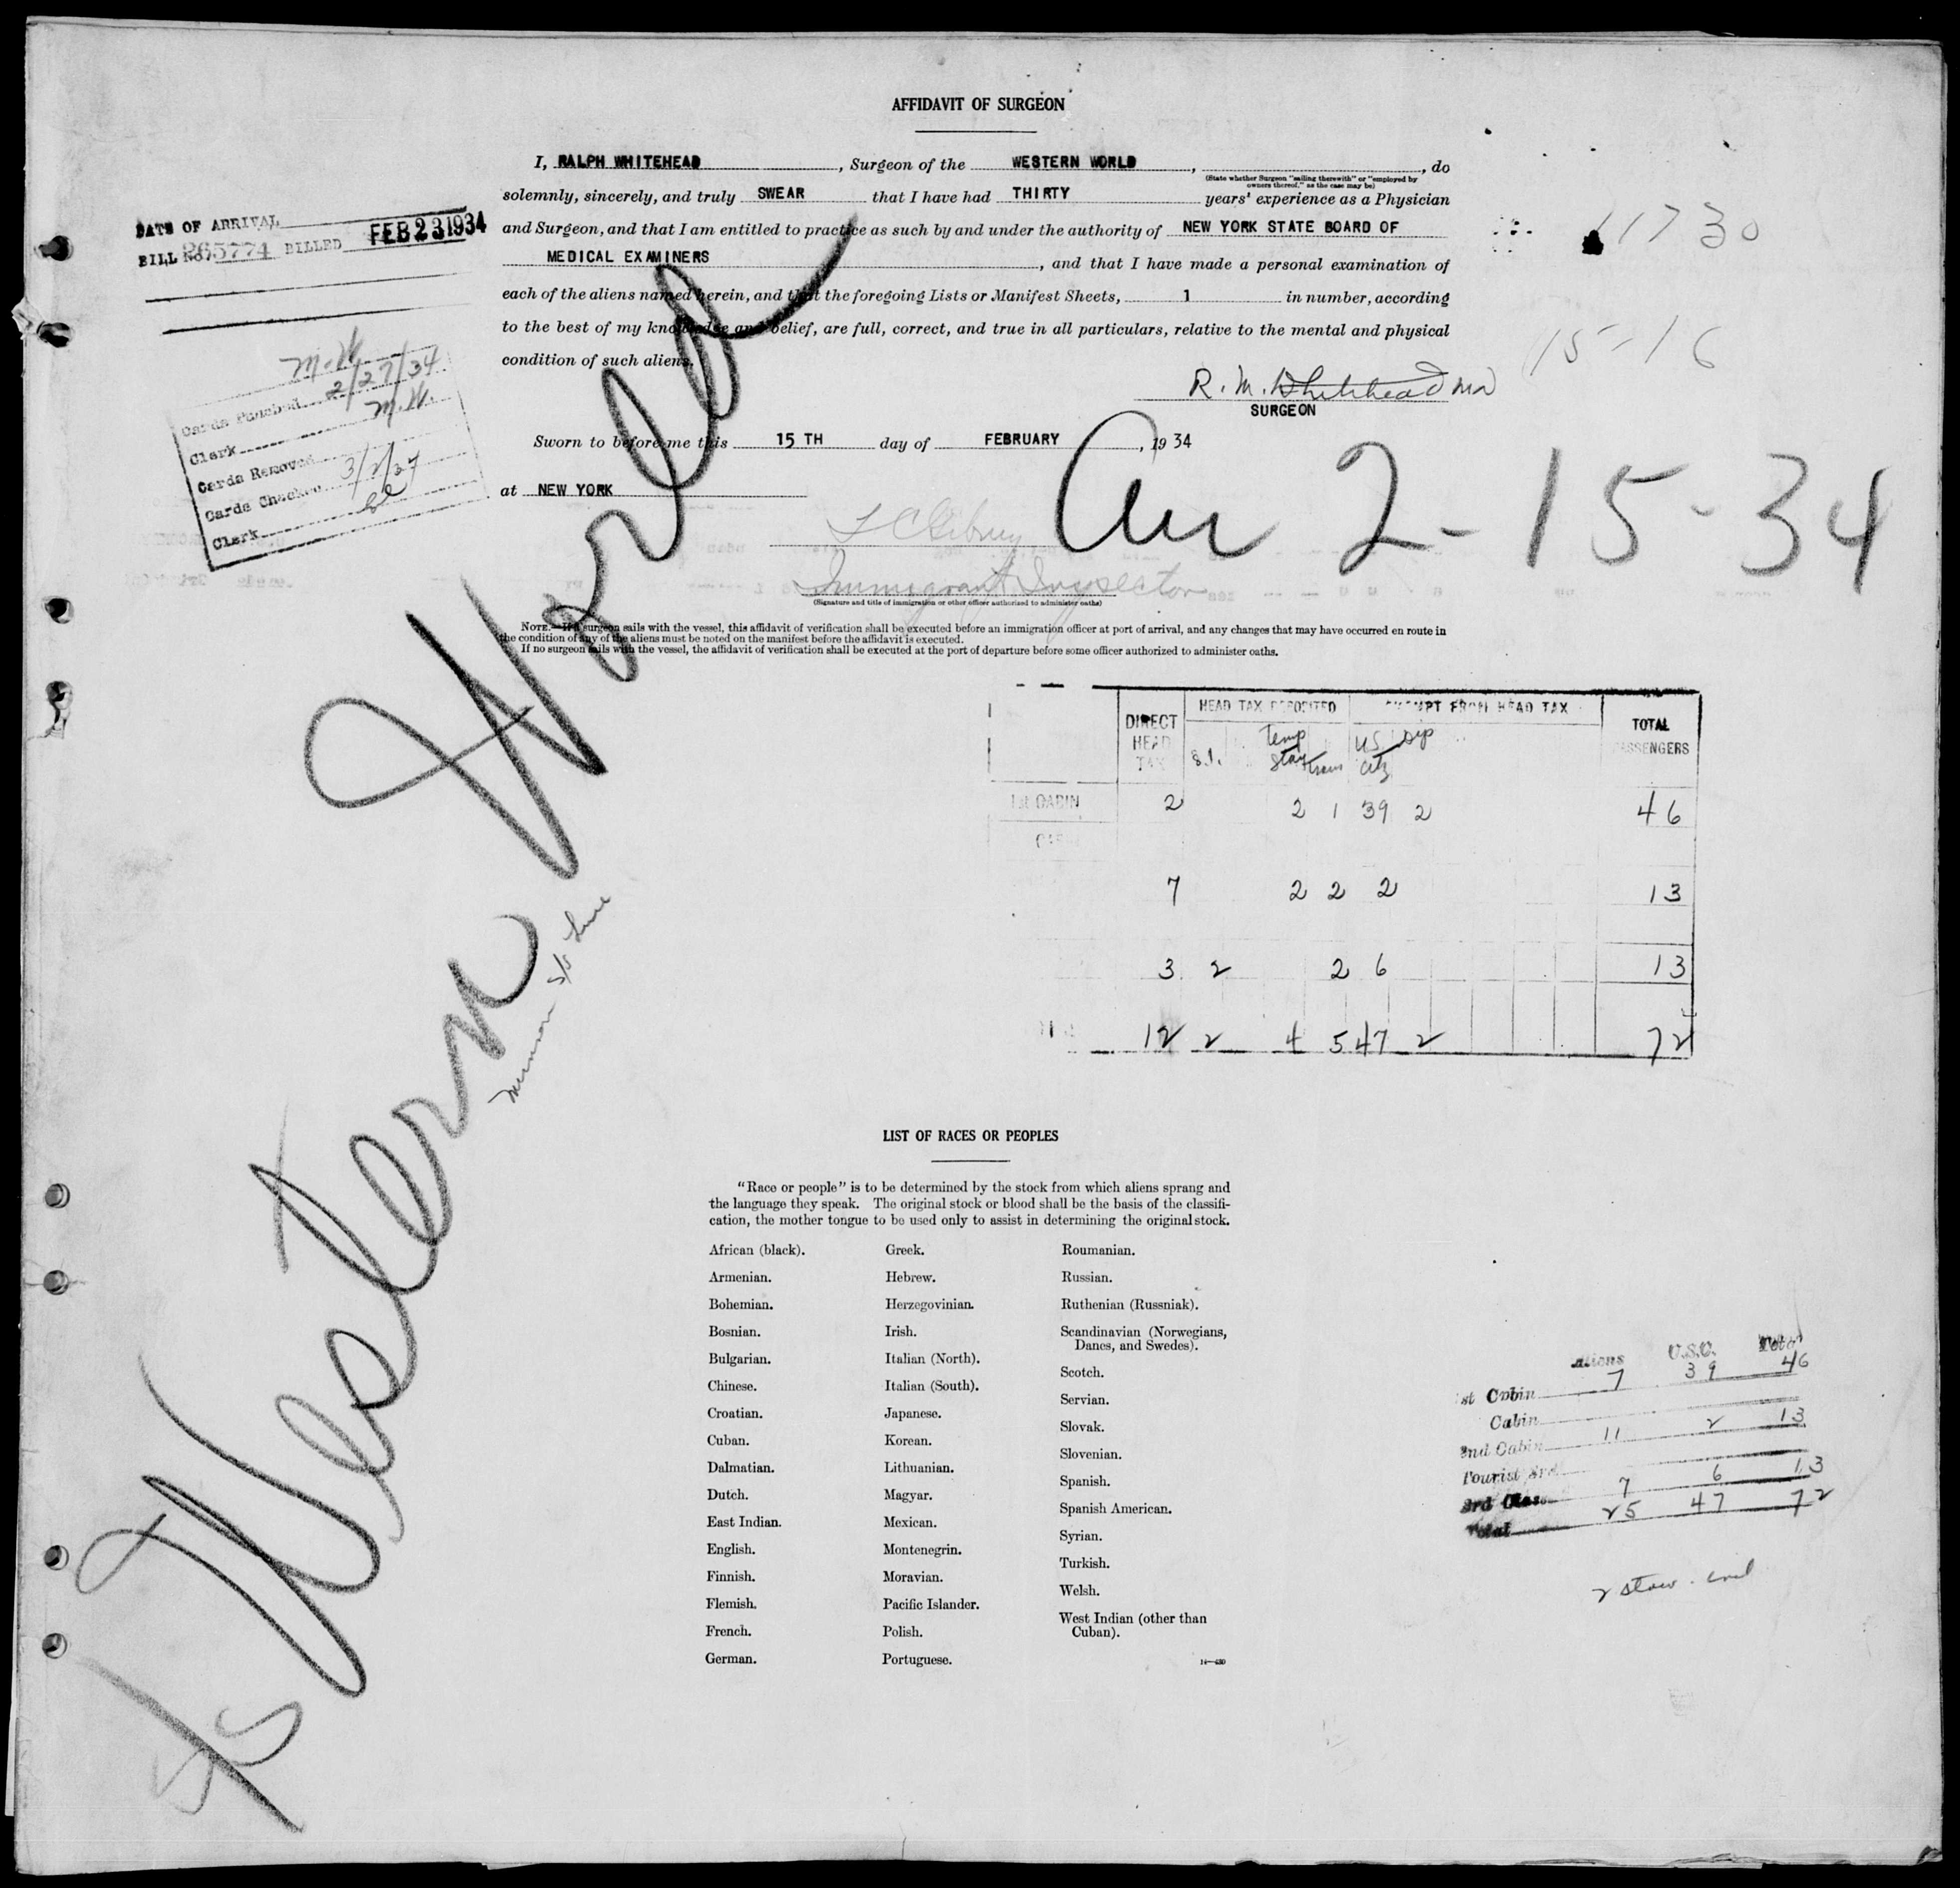 AFFIDAVIT OF SURGEON
I, RALPH WHITEHEAD, Surgeon of the WESTERN WORLD, , do
(State whether Surgeon "sailing therewith" or "employed by
owners thereof," as the case may be)
solemnly, sincerely, and truly SWEAR that I have had THIRTY years' experience as a Physician
and Surgeon, and that I am entitled to practice as such by and under the authority of NEW YORK STATE BOARD OF
MEDICAL EXAMINERS, and that I have made a personal examination of
each of the aliens named herein, and that the foregoing Lists or Manifest Sheets, 1 in number, according
to the best of my knowledge and belief, are full, correct, and true in all particulars, relative to the mental and physical
condition of such aliens.
R. M. Whitehead MD
SURGEON
Sworn to before me this 15 TH day of FEBRUARY, 19 34
at NEW YORK
Immigrant Inspector
(Signature and title of immigration or other officer authorized to administer oaths)
NOTE.—If a surgeon sails with the vessel, this affidavit of verification shall be executed before an immigration officer at port of arrival, and any changes that may have occurred en route in
the condition of any of the aliens must be noted on the manifest before the affidavit is executed.
If no surgeon sails with the vessel, the affidavit of verification shall be executed at the port of departure before some officer authorized to administer oaths.
DATE OF ARRIVAL
BILL No. 265774 BILLED FEB 23 1934
M.K.
Cards Punched 2/27/34
Clerk M.K.
Cards Removed
Cards Checked 3/2/34
Clerk
11730
15-16
Arr 2-15-34
S/S Western World
Munson S/S Line
DIRECT HEAD TAX
HEAD TAX DEPOSITED
EXEMPT FROM HEAD TAX
TOTAL PASSENGERS
S.I. Temp Stay Trans US Citz Dip
1st CABIN 2 2 1 39 2 46
7 2 2 2 13
3 2 2 6 13
12 2 4 5 47 2 72
LIST OF RACES OR PEOPLES
"Race or people" is to be determined by the stock from which aliens sprang and
the language they speak. The original stock or blood shall be the basis of the classifi-
cation, the mother tongue to be used only to assist in determining the original stock.
African (black).
Armenian.
Bohemian.
Bosnian.
Bulgarian.
Chinese.
Croatian.
Cuban.
Dalmatian.
Dutch.
East Indian.
English.
Finnish.
Flemish.
French.
German.
Greek.
Hebrew.
Herzegovinian.
Irish.
Italian (North).
Italian (South).
Japanese.
Korean.
Lithuanian.
Magyar.
Mexican.
Montenegrin.
Moravian.
Pacific Islander.
Polish.
Portuguese.
Roumanian.
Russian.
Ruthenian (Russniak).
Scandinavian (Norwegians,
Danes, and Swedes).
Scotch.
Servian.
Slovak.
Slovenian.
Spanish.
Spanish American.
Syrian.
Turkish.
Welsh.
West Indian (other than
Cuban).
14—430
Aliens U.S.C. Total
1st Cabin 7 39 46
Cabin
2nd Cabin 11 2 13
Tourist 3rd
3rd Class 7 6 13
Total 25 47 72
2 stow.